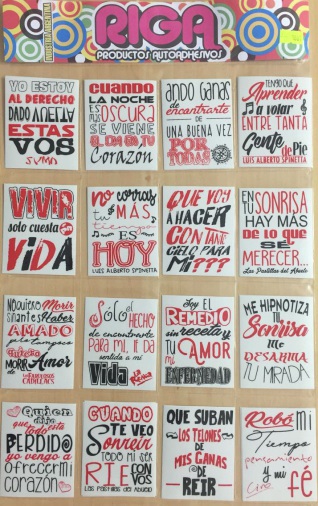 INDUSTRIA ARGENTINA
RIGA
PRODUCTOS AUTOADHESIVOS
YO ESTOY
AL DERECHO
DADO
ESTAS
VOS
SUMO
CUANDO
LA NOCHE
ES MÁS
OSCURA
SE VIENE
EL DIA EN TU
Corazón
ANDO GANAS
de
encontrarte
DE
UNA BUENA VEZ
POR
TODAS
TENGO QUE
Aprender
a volar
ENTRE TANTA
Gente
de Pie
LUIS ALBERTO SPINETTA
VIVIR
solo cuesta
VIDA
no corras
MÁS
tu
tiempo
ES
HOY
LUIS ALBERTO SPINETTA
QUE VOY
A HACER
CON TANTO
CIELO PARA
MI???
EN TU SONRISA
HAY MAS
DE LO QUE
SE
MERECER...
Las Pastillas del Abuelo
NO QUIERO Morir
SIN ANTES Haber
AMADO
pero tampoco
Quiero
MORIR de Amor
LOS FABULOSOS
CADILLACS
Sólo el HECHO
de encontrarte
PARA MI, LE DA
sentido a mi
Vida
La Renga
Soy EL
REMEDIO
sin receta y
TU AMOR
MI
ENFERMEDAD
ME HIPNOTIZA
tu
Sonrisa
ME
DESARMA
TU MIRADA
Quien
dijo
que todo
está
PERDIDO
yo vengo a
ofrecer mi
corazón
CUANDO
TE VEO
Sonreír
TODO MI SER
RIE CON
VOS
Las Pastillas del Abuelo
QUE SUBAN
LOS TELONES
DE
MIS GANAS
DE
REIR
Robó mi
Tiempo
pensamiento
y mi
fé